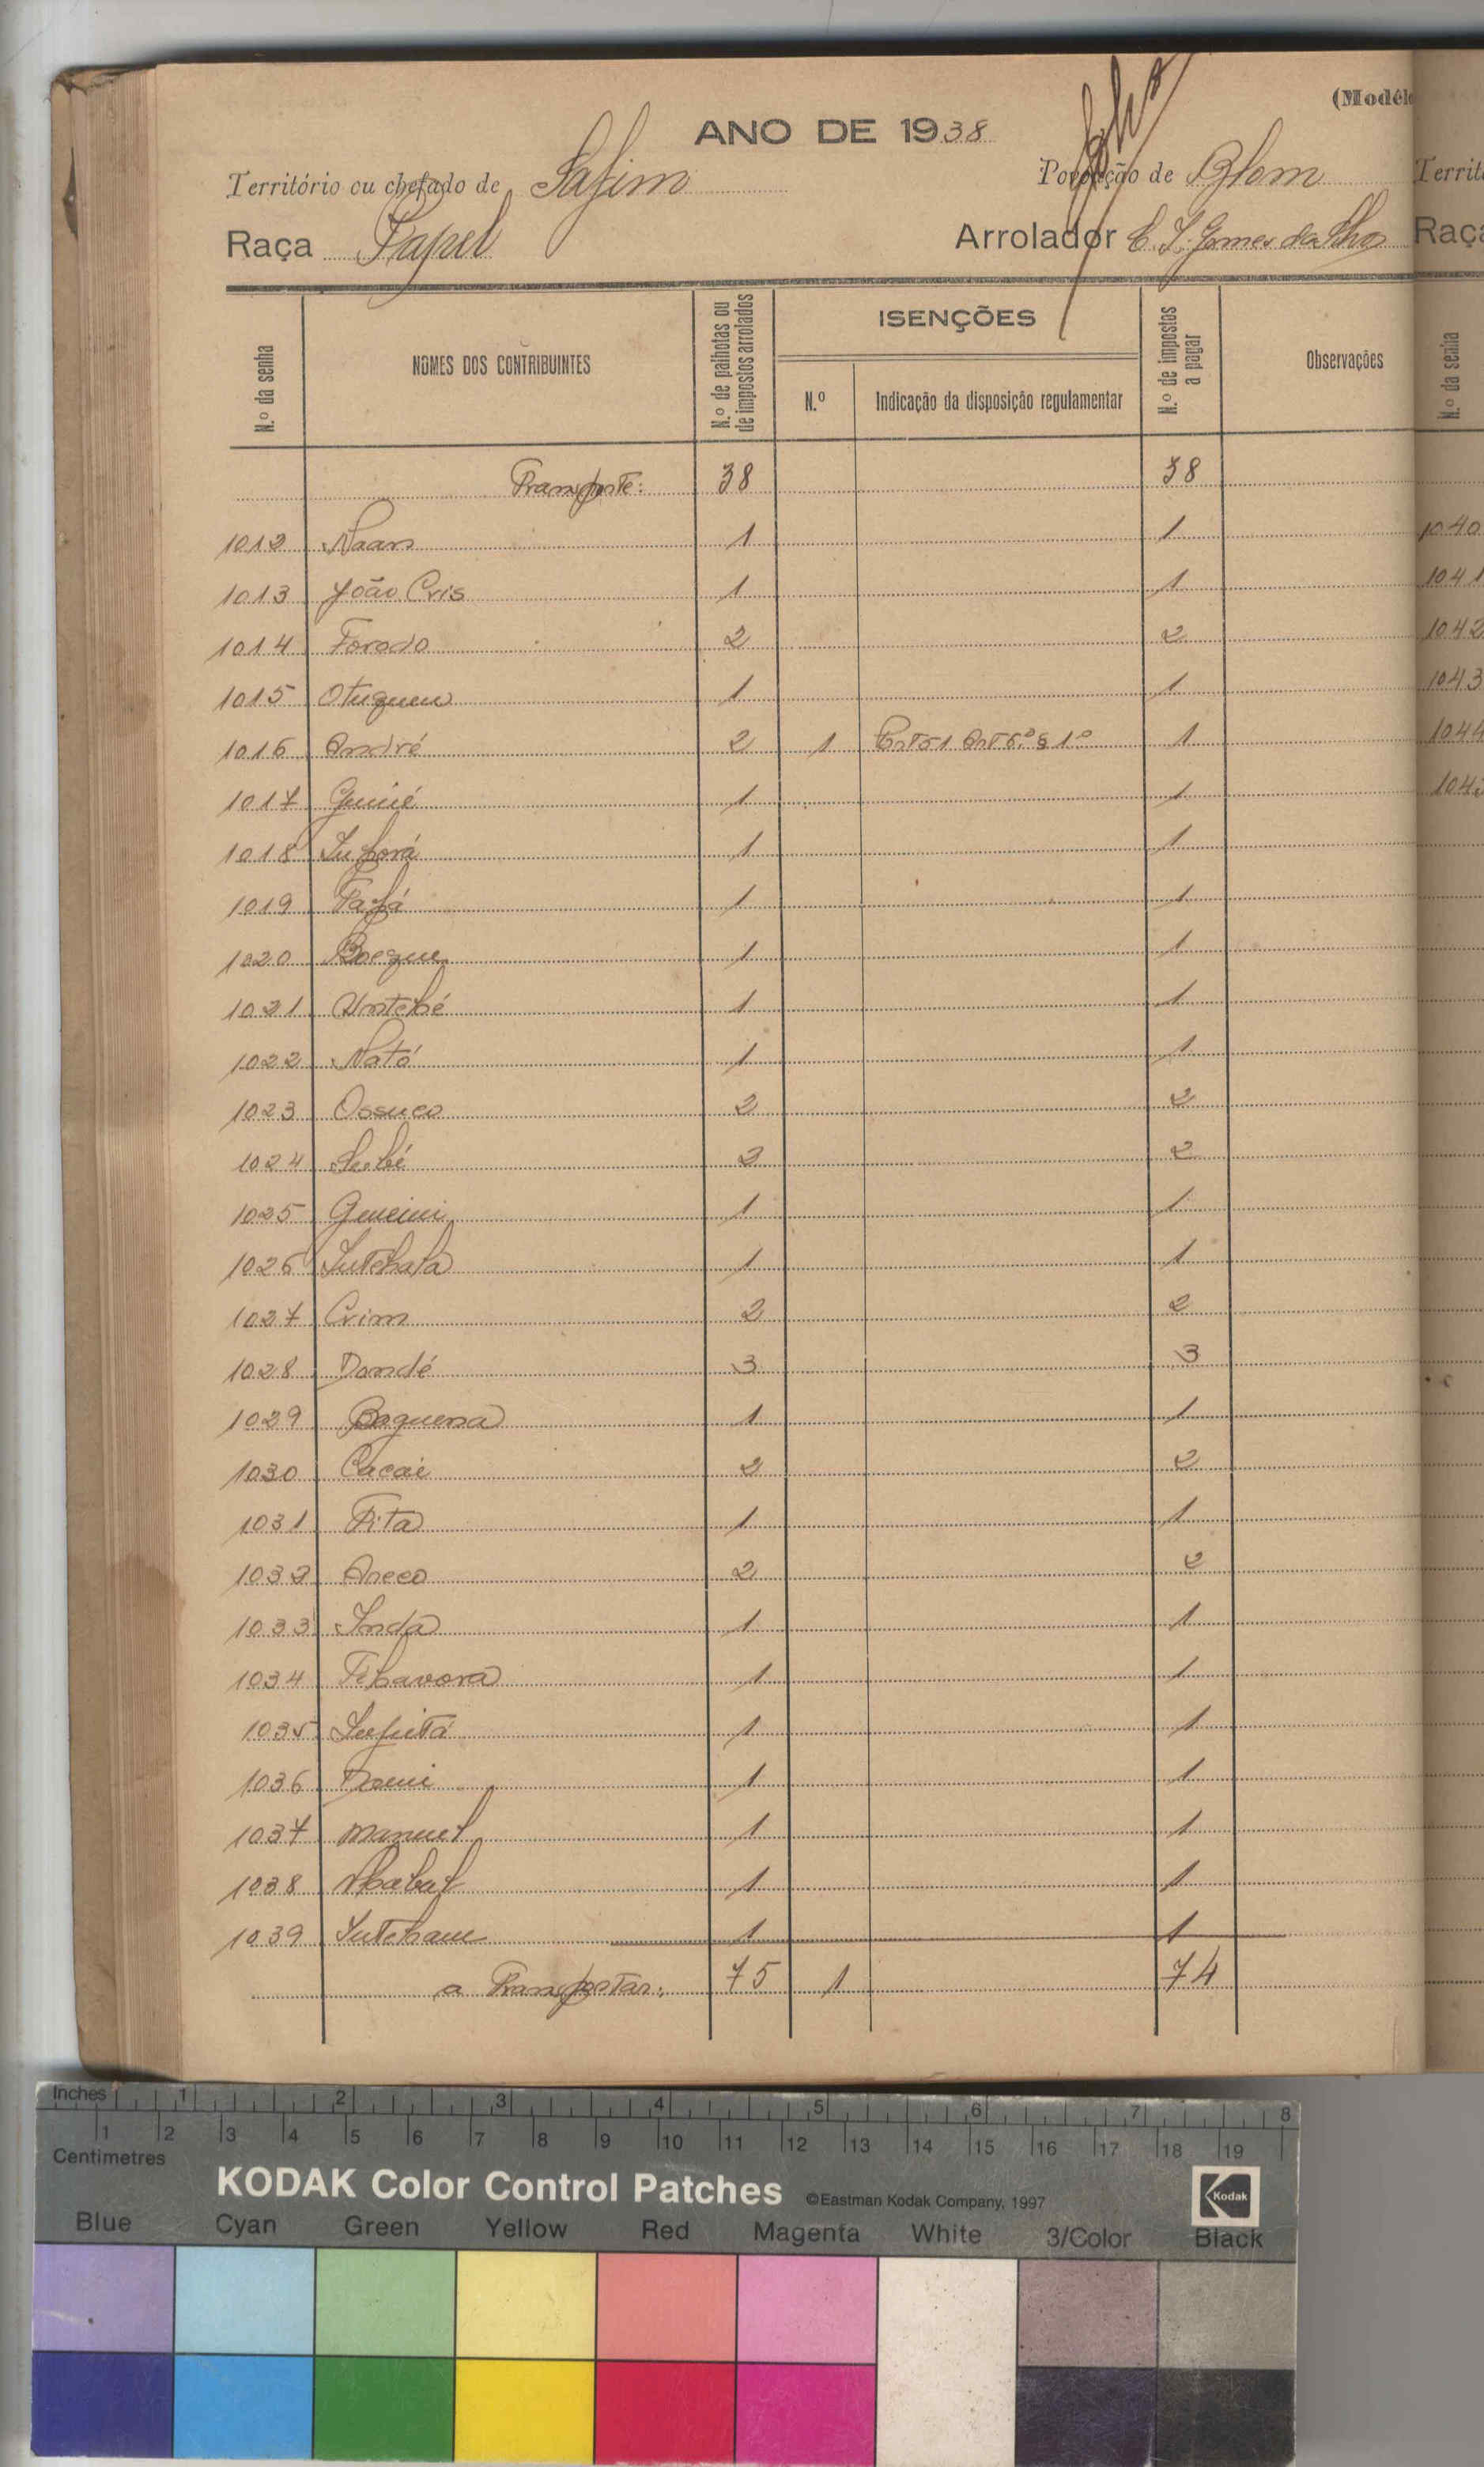 (Modêl
ANO DE 1938
Território ou chefado de Safim Povoação de Blom
Raça Papel Arrolador C. S. Gomes da
N.º da senha NOMES DOS CONTRIBUINTES N.º de palhotas ou de impostos arrolados ISENÇÕES N.º Indicação da disposição regulamentar N.º de impostos a pagar Observações
Transporte: 38 38
1012 Naan 1 1
1013 João Cris 1 1
1014 Forodo 2 2
1015 Otuqueu 1 1
1016 André 2 1 Art.º 6.º § 1º 1
1017 Guiné 1 1
1018 1 1
1019 Fafá 1 1
1020 Boque 1 1
1021 Untché 1 1
1022 Nató 1 1
1023 Ossuco 2 2
1024 2 2
1025 1 1
1026 Sutchala 1 1
1027 Crim 2 2
1028 Dondé 3 3
1029 Baquena 1 1
1030 Cacai 2 2
1031 Fita 1 1
1032 Aneco 2 2
1033 Inda 1 1
1034 Tchavora 1 1
1035 1 1
1036 1 1
1037 Manuel 1 1
1038 1 1
1039 Sutcham 1 1
a Transportar: 75 1 74
Territ
Raça
N.º da senha
1040
1041
1042
1043
1044
104
Inches 1 2 3 4 5 6 7 8
1 2 3 4 5 6 7 8 9 10 11 12 13 14 15 16 17 18 19
Centimetres
KODAK Color Control Patches ©Eastman Kodak Company, 1997 Kodak
Blue Cyan Green Yellow Red Magenta White 3/Color Black